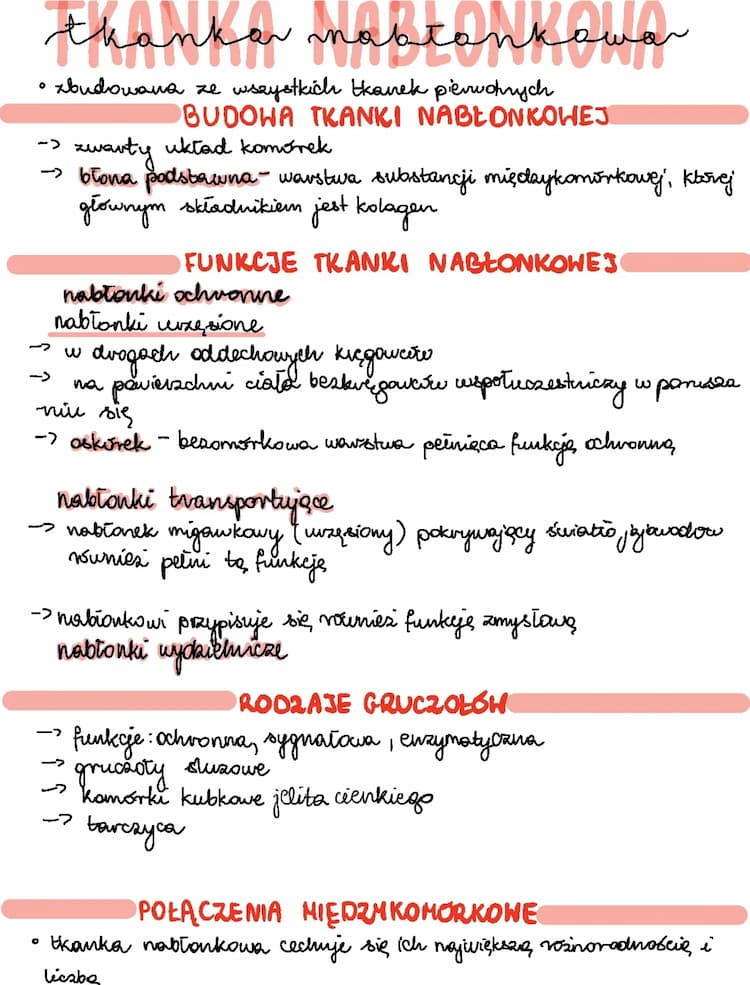 TKANKA NABŁONKOWA
tkanka nabłonkowa
• zbudowana ze wszystkich tkanek pierwotnych
BUDOWA TKANKI NABŁONKOWEJ
-> zwarty układ komórek
-> błona podstawna - warstwa substancji międzykomórkowej, której
głównym składnikiem jest kolagen
FUNKCJE TKANKI NABŁONKOWEJ
nabłonki ochronne
nabłonki urzęsione
-> w drogach oddechowych kręgowców
-> na powierzchni ciała bezkręgowców współuczestniczy w porusza
niu się
-> oskórek - bezkomórkowa warstwa pełniąca funkcję ochronną
nabłonki transportujące
-> nabłonek migawkowy (urzęsiony) pokrywający światło jajowodów
również pełni tą funkcję
-> nabłonkowi przypisuje się również funkcję zmysłową
nabłonki wydzielnicze
RODZAJE GRUCZOŁÓW
-> funkcje: ochronna, sygnałowa, enzymatyczna
-> gruczoły śluzowe
-> komórki kubkowe jelita cienkiego
-> tarczyca
POŁĄCZENIA MIĘDZYKOMÓRKOWE
• tkanka nabłonkowa cechuje się ich największą różnorodnością i
liczbą